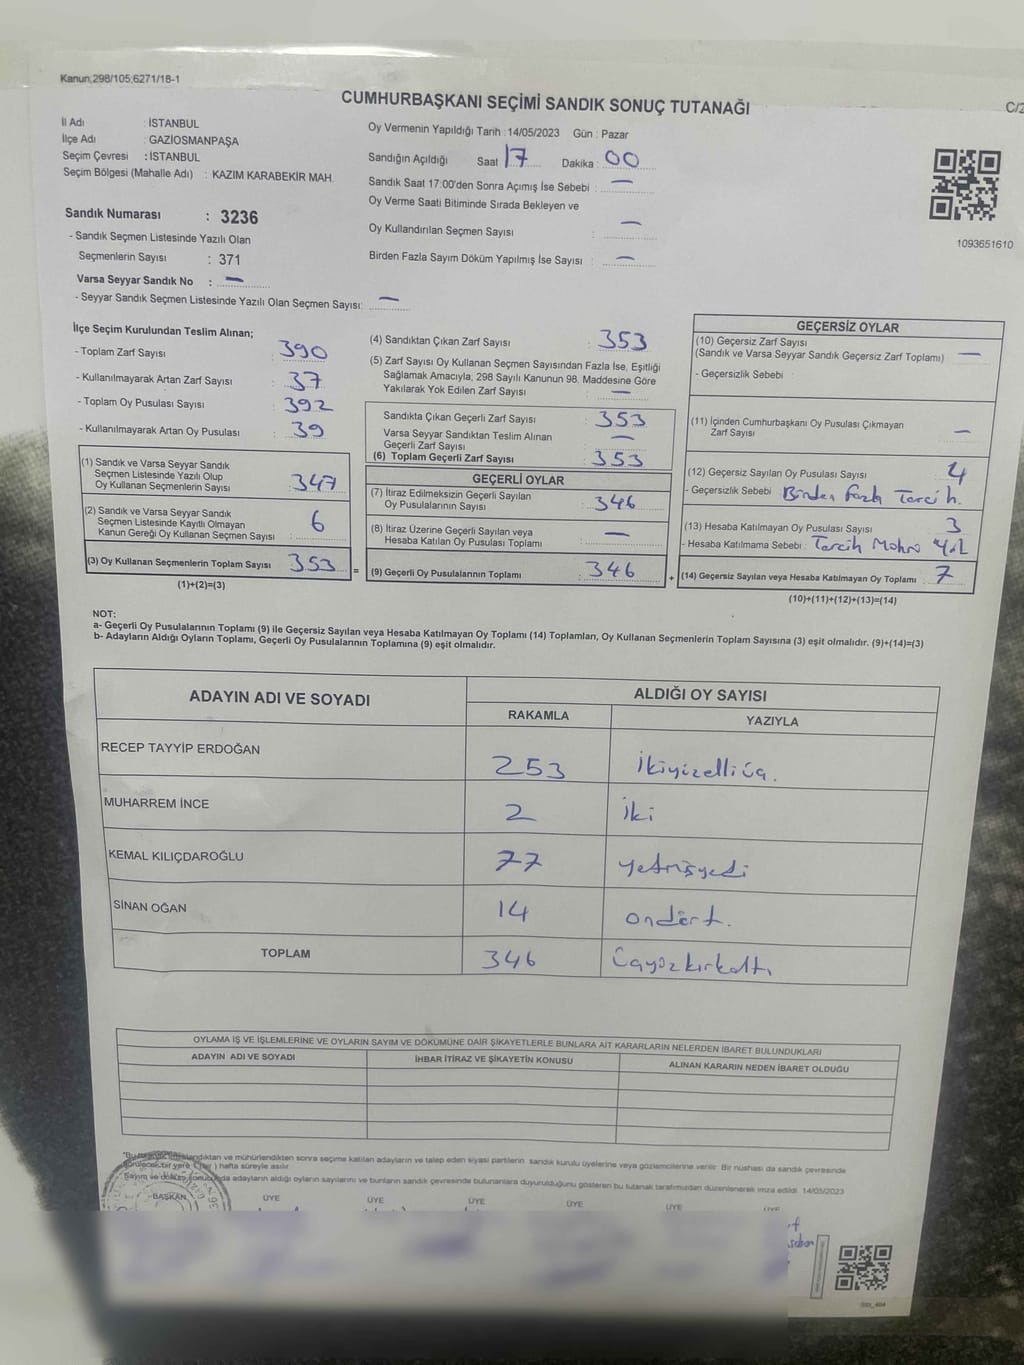 Kanun;298/105;6271/18-1
CUMHURBAŞKANI SEÇİMİ SANDIK SONUÇ TUTANAĞI
C/2
İl Adı : İSTANBUL
İlçe Adı : GAZİOSMANPAŞA
Seçim Çevresi : İSTANBUL
Seçim Bölgesi (Mahalle Adı) : KAZIM KARABEKİR MAH.
Oy Vermenin Yapıldığı Tarih : 14/05/2023 Gün : Pazar
Sandığın Açıldığı Saat 17 Dakika : 00
Sandık Saat 17:00'den Sonra Açımış İse Sebebi : —
Oy Verme Saati Bitiminde Sırada Bekleyen ve
Oy Kullandırılan Seçmen Sayısı : —
Birden Fazla Sayım Döküm Yapılmış İse Sayısı : —
1093651610
Sandık Numarası : 3236
- Sandık Seçmen Listesinde Yazılı Olan
Seçmenlerin Sayısı : 371
Varsa Seyyar Sandık No : —
- Seyyar Sandık Seçmen Listesinde Yazılı Olan Seçmen Sayısı: —
İlçe Seçim Kurulundan Teslim Alınan;
- Toplam Zarf Sayısı : 390
- Kullanılmayarak Artan Zarf Sayısı : 37
- Toplam Oy Pusulası Sayısı : 392
- Kullanılmayarak Artan Oy Pusulası : 39
(1) Sandık ve Varsa Seyyar Sandık
Seçmen Listesinde Yazılı Olup
Oy Kullanan Seçmenlerin Sayısı : 347
(2) Sandık ve Varsa Seyyar Sandık
Seçmen Listesinde Kayıtlı Olmayan
Kanun Gereği Oy Kullanan Seçmen Sayısı : 6
(3) Oy Kullanan Seçmenlerin Toplam Sayısı 353 =
(1)+(2)=(3)
(4) Sandıktan Çıkan Zarf Sayısı : 353
(5) Zarf Sayısı Oy Kullanan Seçmen Sayısından Fazla İse, Eşitliği
Sağlamak Amacıyla; 298 Sayılı Kanunun 98. Maddesine Göre
Yakılarak Yok Edilen Zarf Sayısı : —
Sandıkta Çıkan Geçerli Zarf Sayısı : 353
Varsa Seyyar Sandıktan Teslim Alınan
Geçerli Zarf Sayısı : —
(6) Toplam Geçerli Zarf Sayısı : 353
GEÇERLİ OYLAR
(7) İtiraz Edilmeksizin Geçerli Sayılan
Oy Pusulalarının Sayısı : 346
(8) İtiraz Üzerine Geçerli Sayılan veya
Hesaba Katılan Oy Pusulası Toplamı : —
(9) Geçerli Oy Pusulalarının Toplamı : 346 +
GEÇERSİZ OYLAR
(10) Geçersiz Zarf Sayısı
(Sandık ve Varsa Seyyar Sandık Geçersiz Zarf Toplamı) : —
- Geçersizlik Sebebi :
(11) İçinden Cumhurbaşkanı Oy Pusulası Çıkmayan
Zarf Sayısı : —
(12) Geçersiz Sayılan Oy Pusulası Sayısı : 4
- Geçersizlik Sebebi : Birden Fazla Tercih.
(13) Hesaba Katılmayan Oy Pusulası Sayısı : 3
- Hesaba Katılmama Sebebi : Tercih Mührü
(14) Geçersiz Sayılan veya Hesaba Katılmayan Oy Toplamı : 7
(10)+(11)+(12)+(13)=(14)
NOT:
a- Geçerli Oy Pusulalarının Toplamı (9) ile Geçersiz Sayılan veya Hesaba Katılmayan Oy Toplamı (14) Toplamları, Oy Kullanan Seçmenlerin Toplam Sayısına (3) eşit olmalıdır. (9)+(14)=(3)
b- Adayların Aldığı Oyların Toplamı, Geçerli Oy Pusulalarının Toplamına (9) eşit olmalıdır.
ADAYIN ADI VE SOYADI ALDIĞI OY SAYISI
RAKAMLA YAZIYLA
RECEP TAYYİP ERDOĞAN 253 İkiyüzelliüç.
MUHARREM İNCE 2 iki
KEMAL KILIÇDAROĞLU 77 yetmişyedi
SİNAN OĞAN 14 ondört.
TOPLAM 346 üçyüzkırkaltı
OYLAMA İŞ VE İŞLEMLERİNE VE OYLARIN SAYIM VE DÖKÜMÜNE DAİR ŞİKAYETLERLE BUNLARA AİT KARARLARIN NELERDEN İBARET BULUNDUKLARI
ADAYIN ADI VE SOYADI İHBAR İTİRAZ VE ŞİKAYETİN KONUSU ALINAN KARARIN NEDEN İBARET OLDUĞU
mühürlendikten sonra seçime katılan adayların ve talep eden siyasi partilerin sandık kurulu üyelerine veya gözlemcilerine verilir. Bir nüshası da sandık çevresinde
hafta süreyle asılır.
Sayım ve döküm adayların aldığı oyların sayılarını ve bunların sandık çevresinde bulunanlara duyurulduğunu gösteren bu tutanak tarafımızdan düzenlenerek imza edildi. 14/05/2023
BAŞKAN ÜYE ÜYE ÜYE ÜYE ÜYE ÜYE